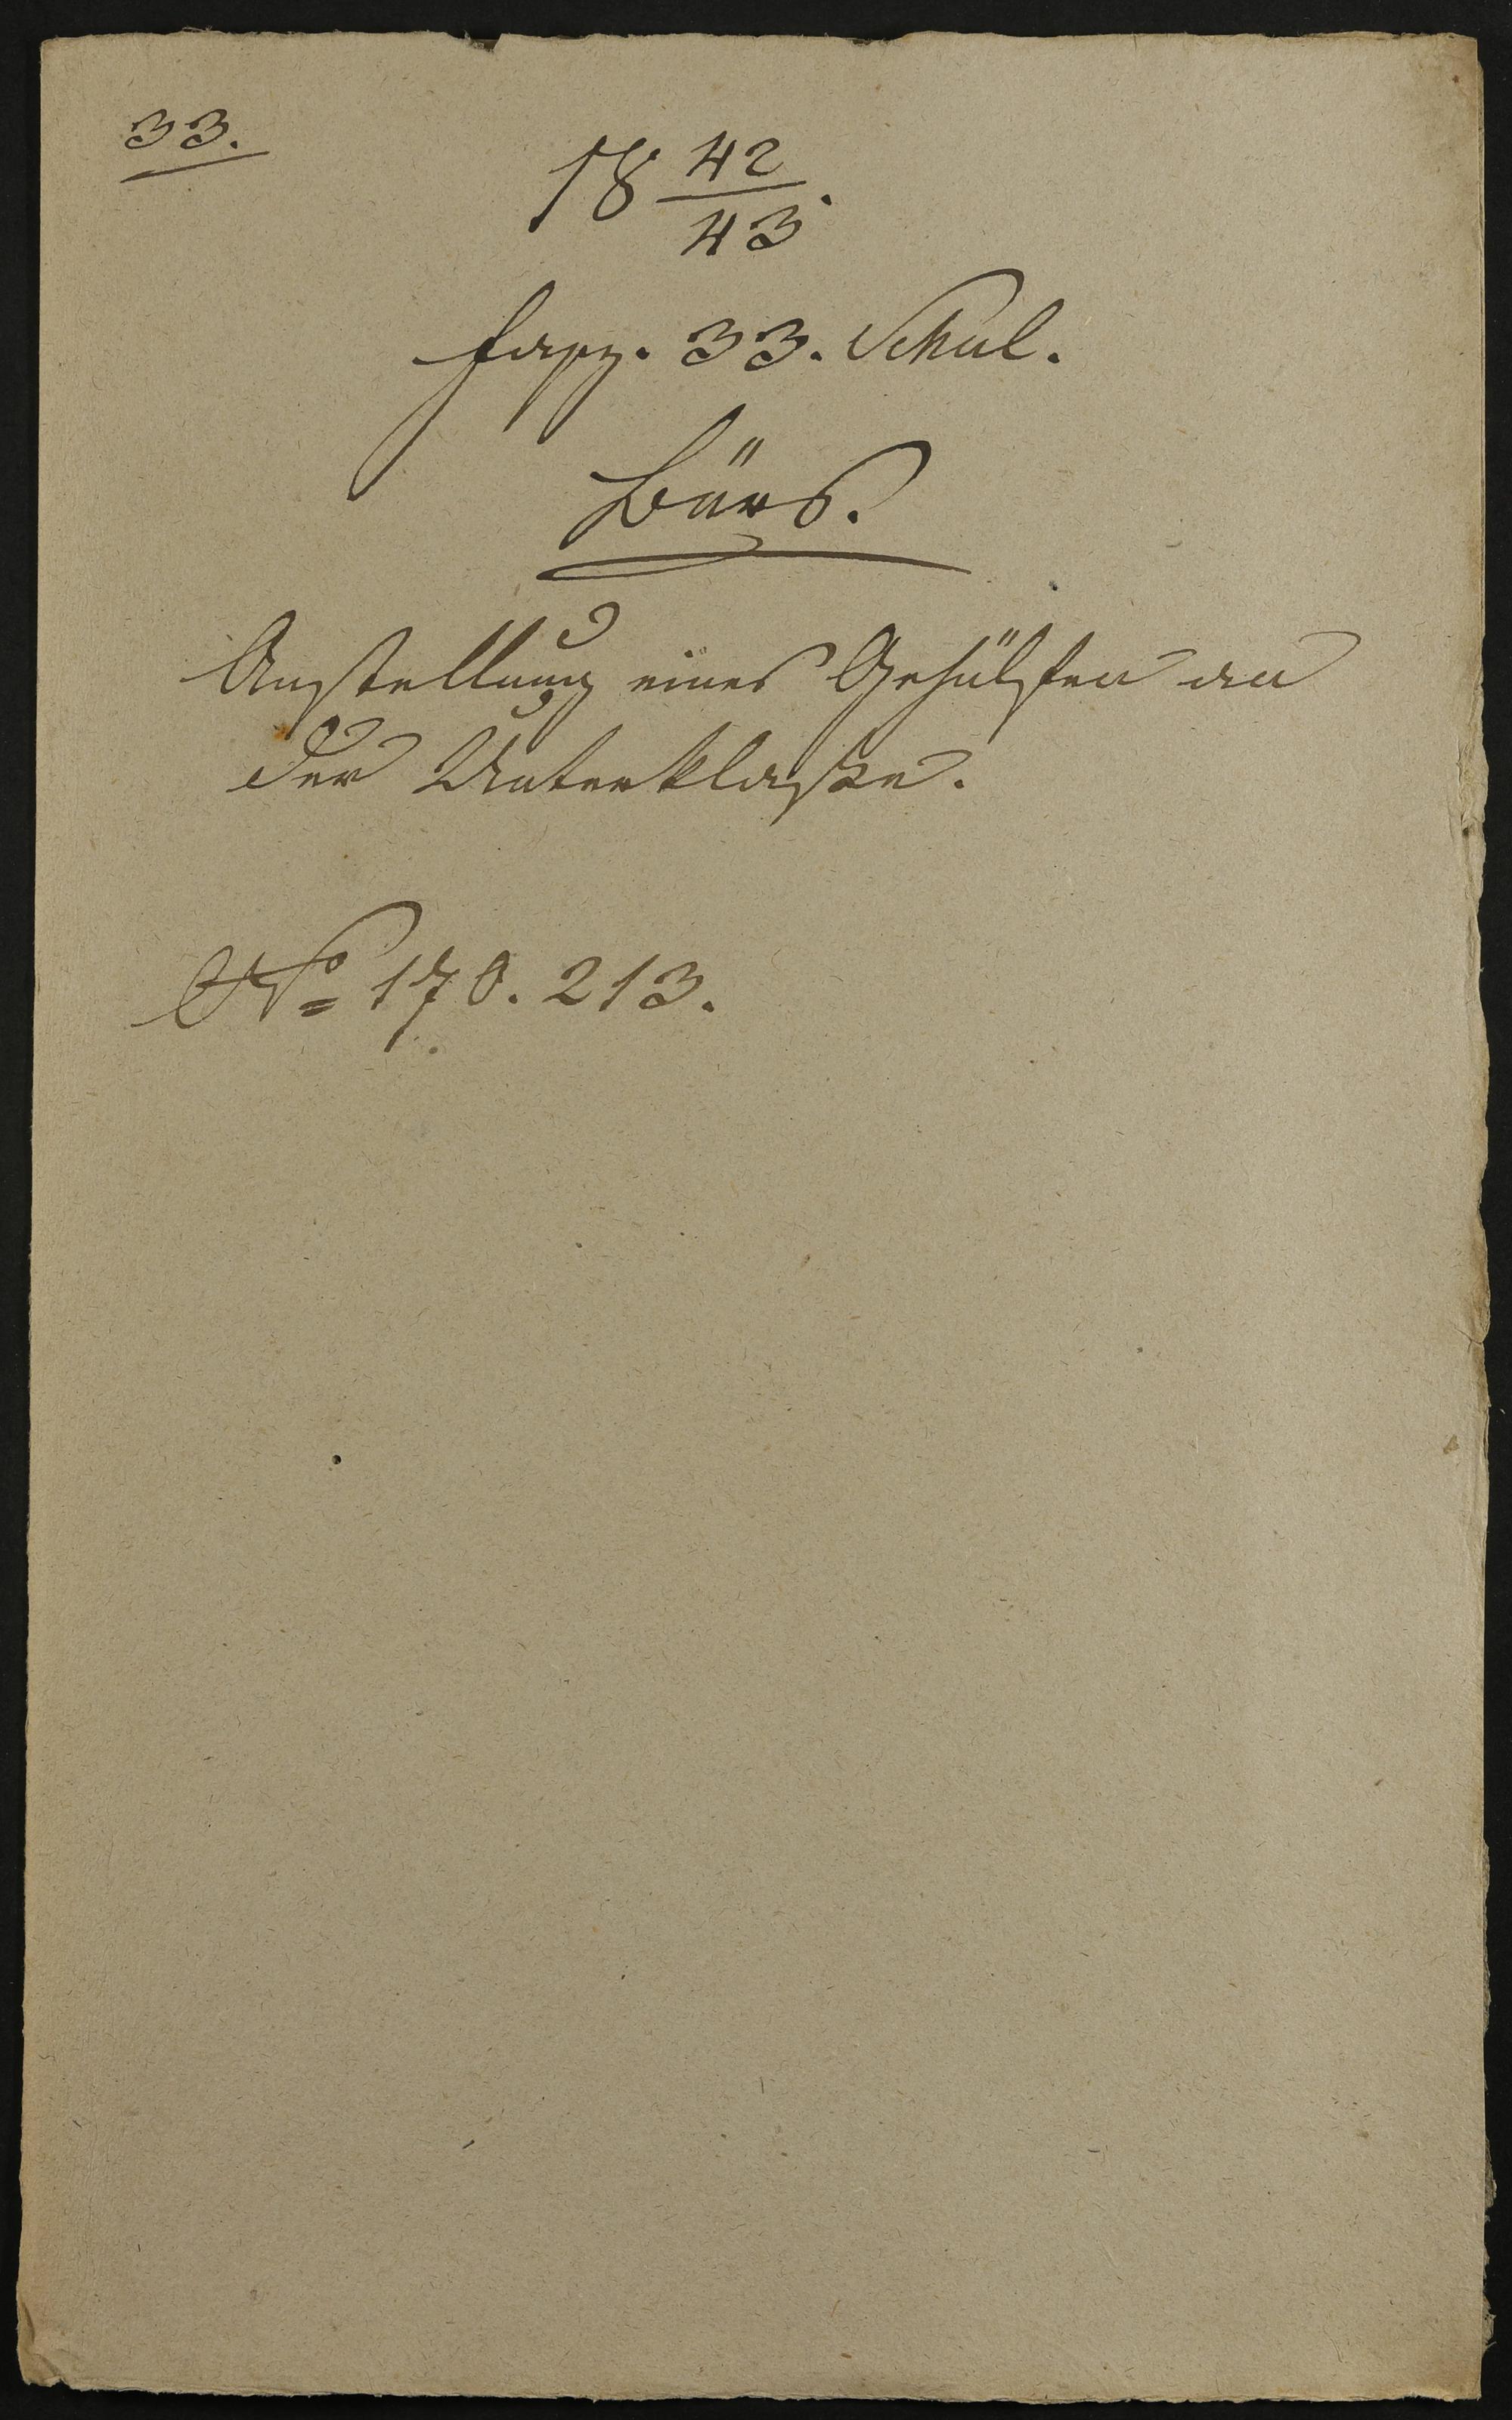 33.
18 42/43.
fasz. 33. Schul.
Bürs.
Anstellung eines Gehülfen an
der Unterklaße.
No 170. 213.